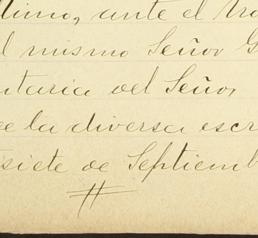 ante el
el mismo Señor G
ntaria del Señor
de la diversa escr
isiete de Septiemb